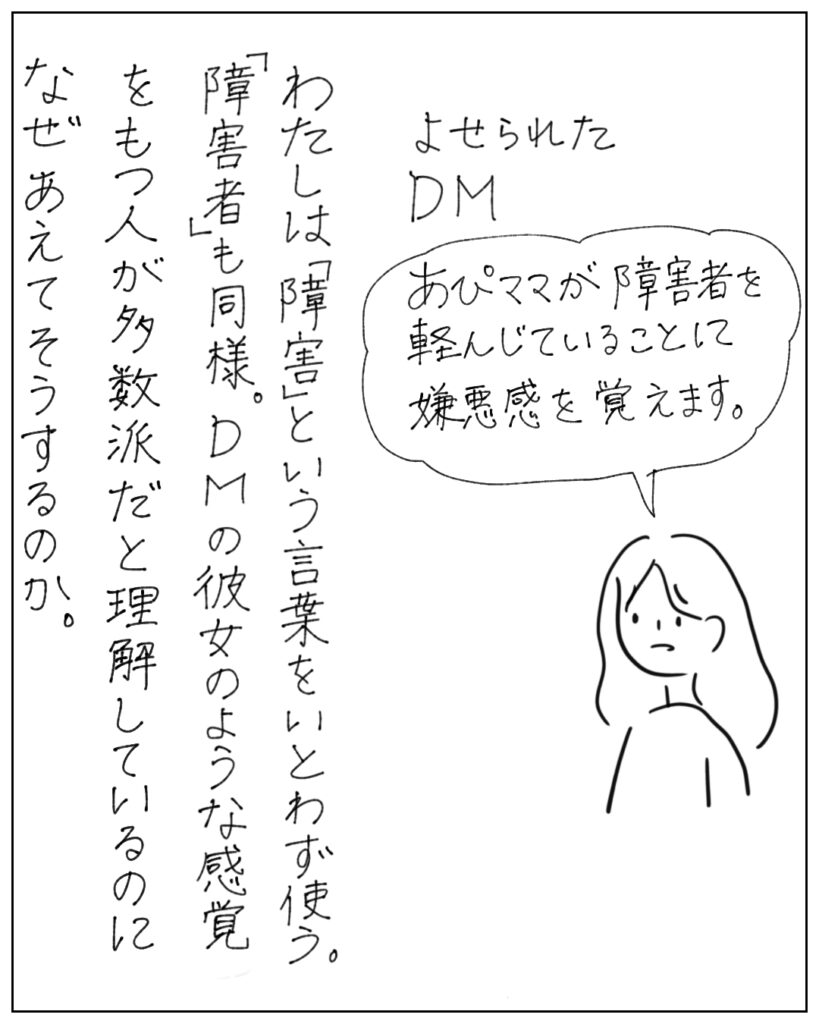 よせられた
DM
あぴママが障害者を
軽んじていることに
嫌悪感を覚えます。
わたしは「障害」という言葉をいとわず使う。
「障害者」も同様。DMの彼女のような感覚
をもつ人が多数派だと理解しているのに
なぜあえてそうするのか。